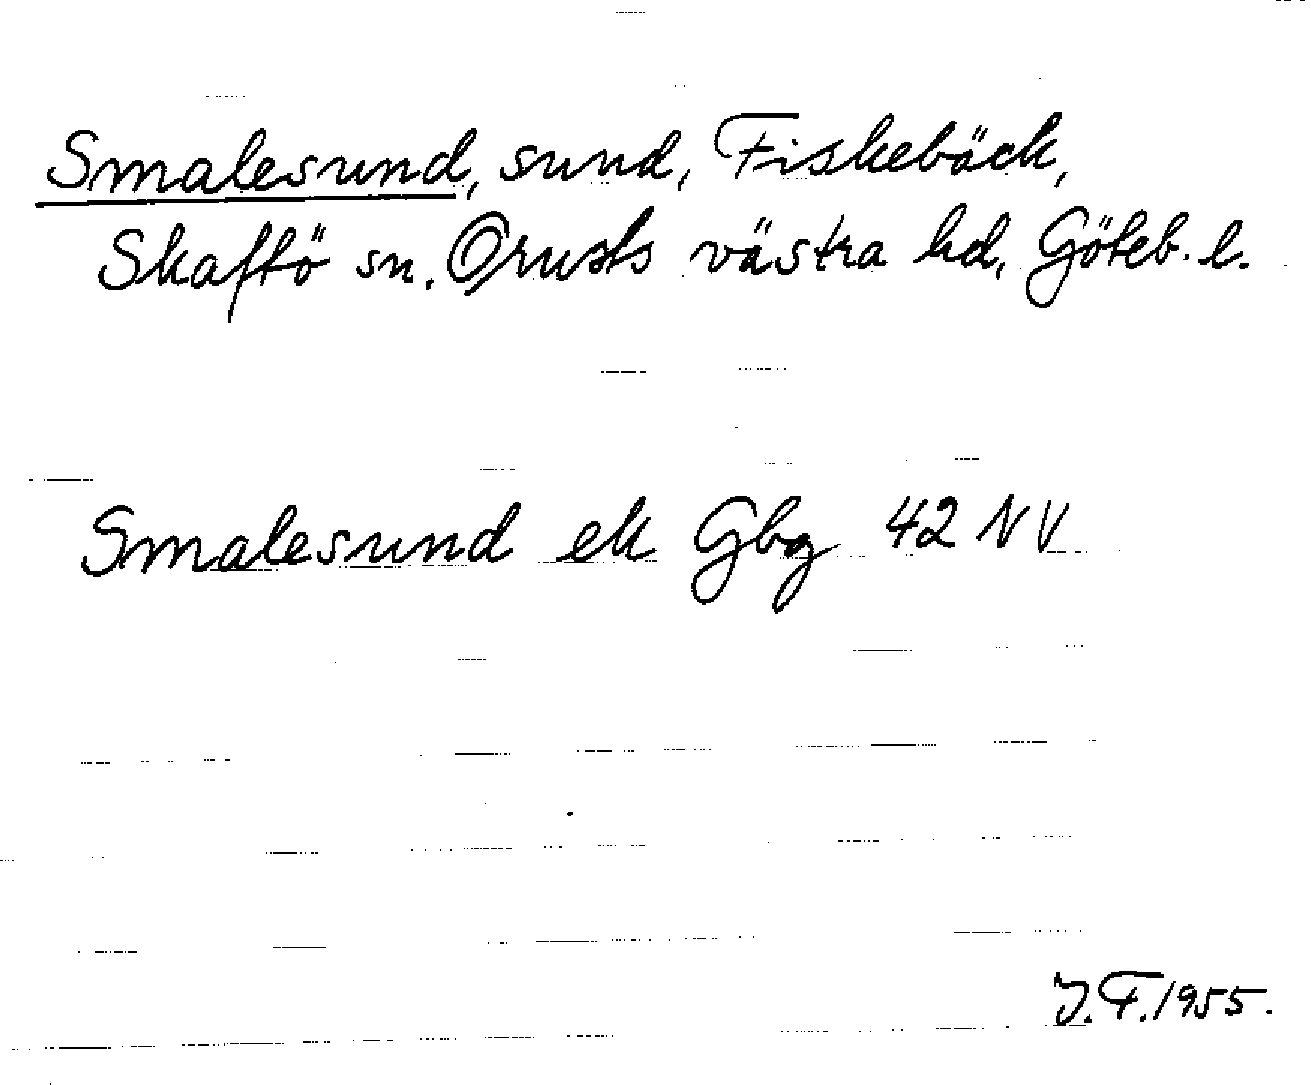 Smalesund, sund, Fiskebäck,
Skaftö sn. Orusts västra hd, Göteb. l.
Smalesund ek Gbg 42 NV
J.F. 1955.